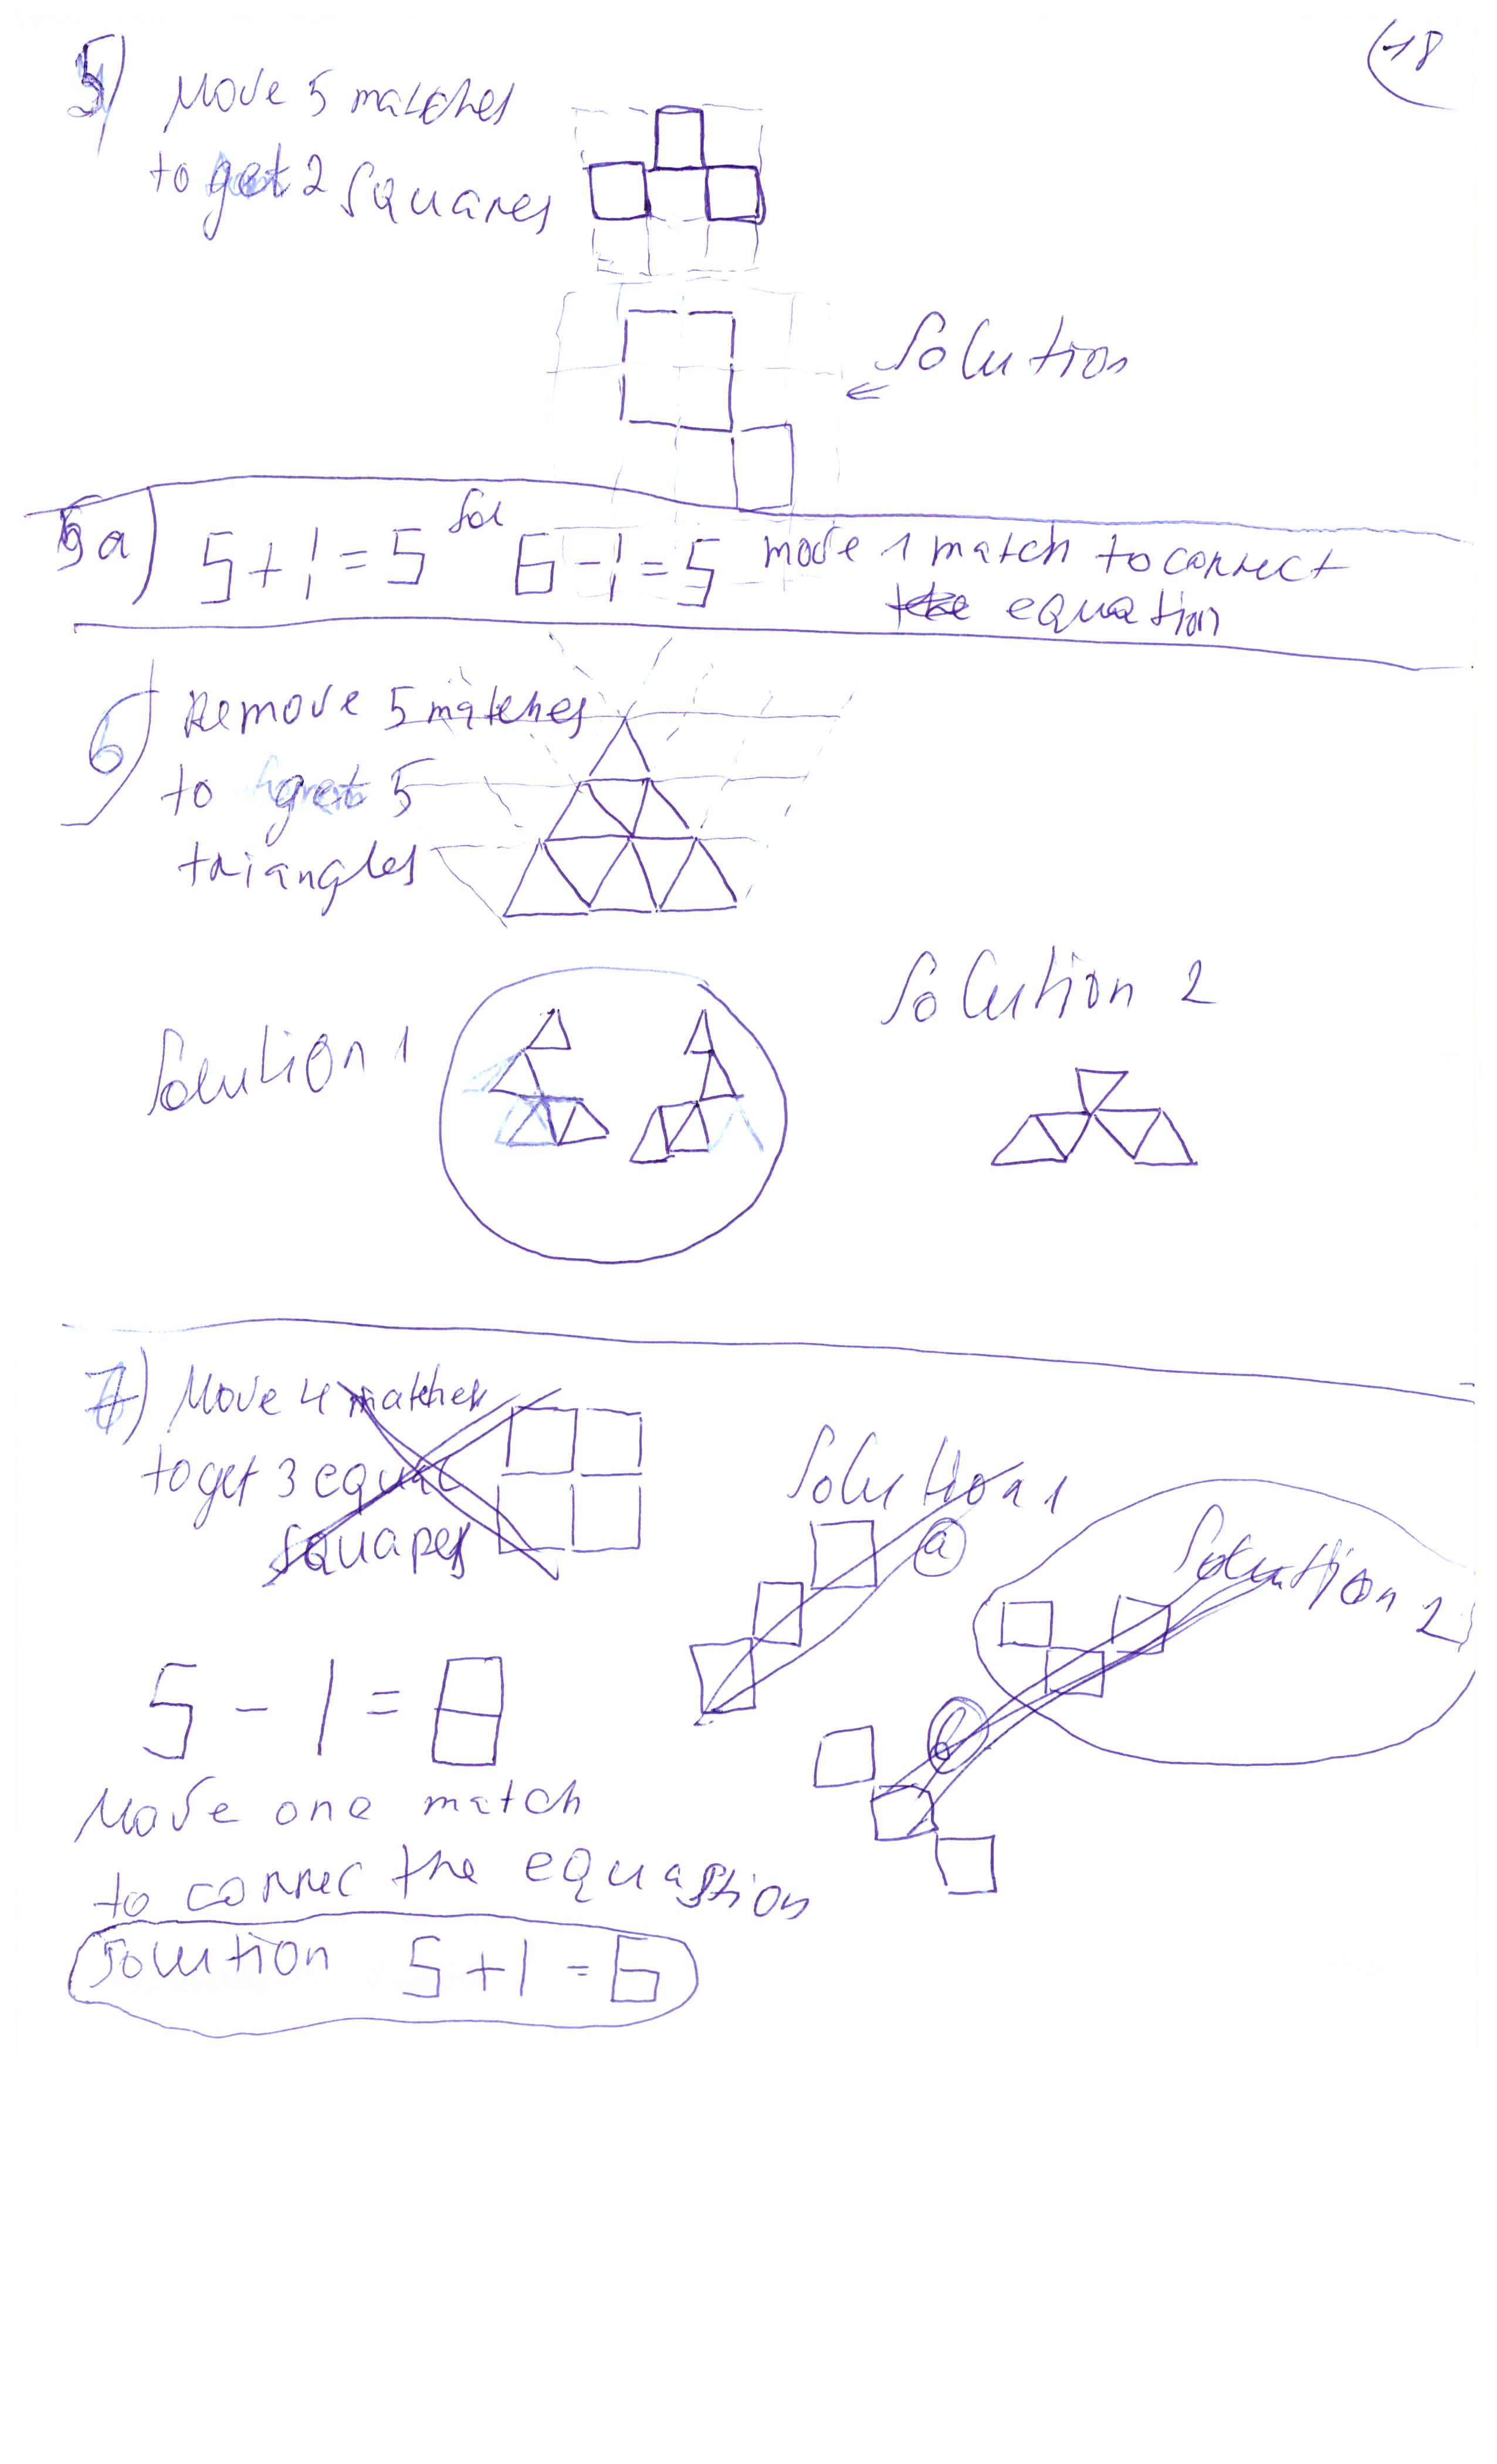 18
5) Move 5 matches
to get 2 squares
Solution
5a) 5+1=5 Sol 6-1=5 move 1 match to correct
equation
6) Remove 5 matches
to get 5
triangles
Solution 1
Solution 2
7) Move 4 matches
to get 3 equal
squares
Solution 1
a
Solution 2
b
5-1=8
Move one match
to correc the equastion
Solution 5+1=6